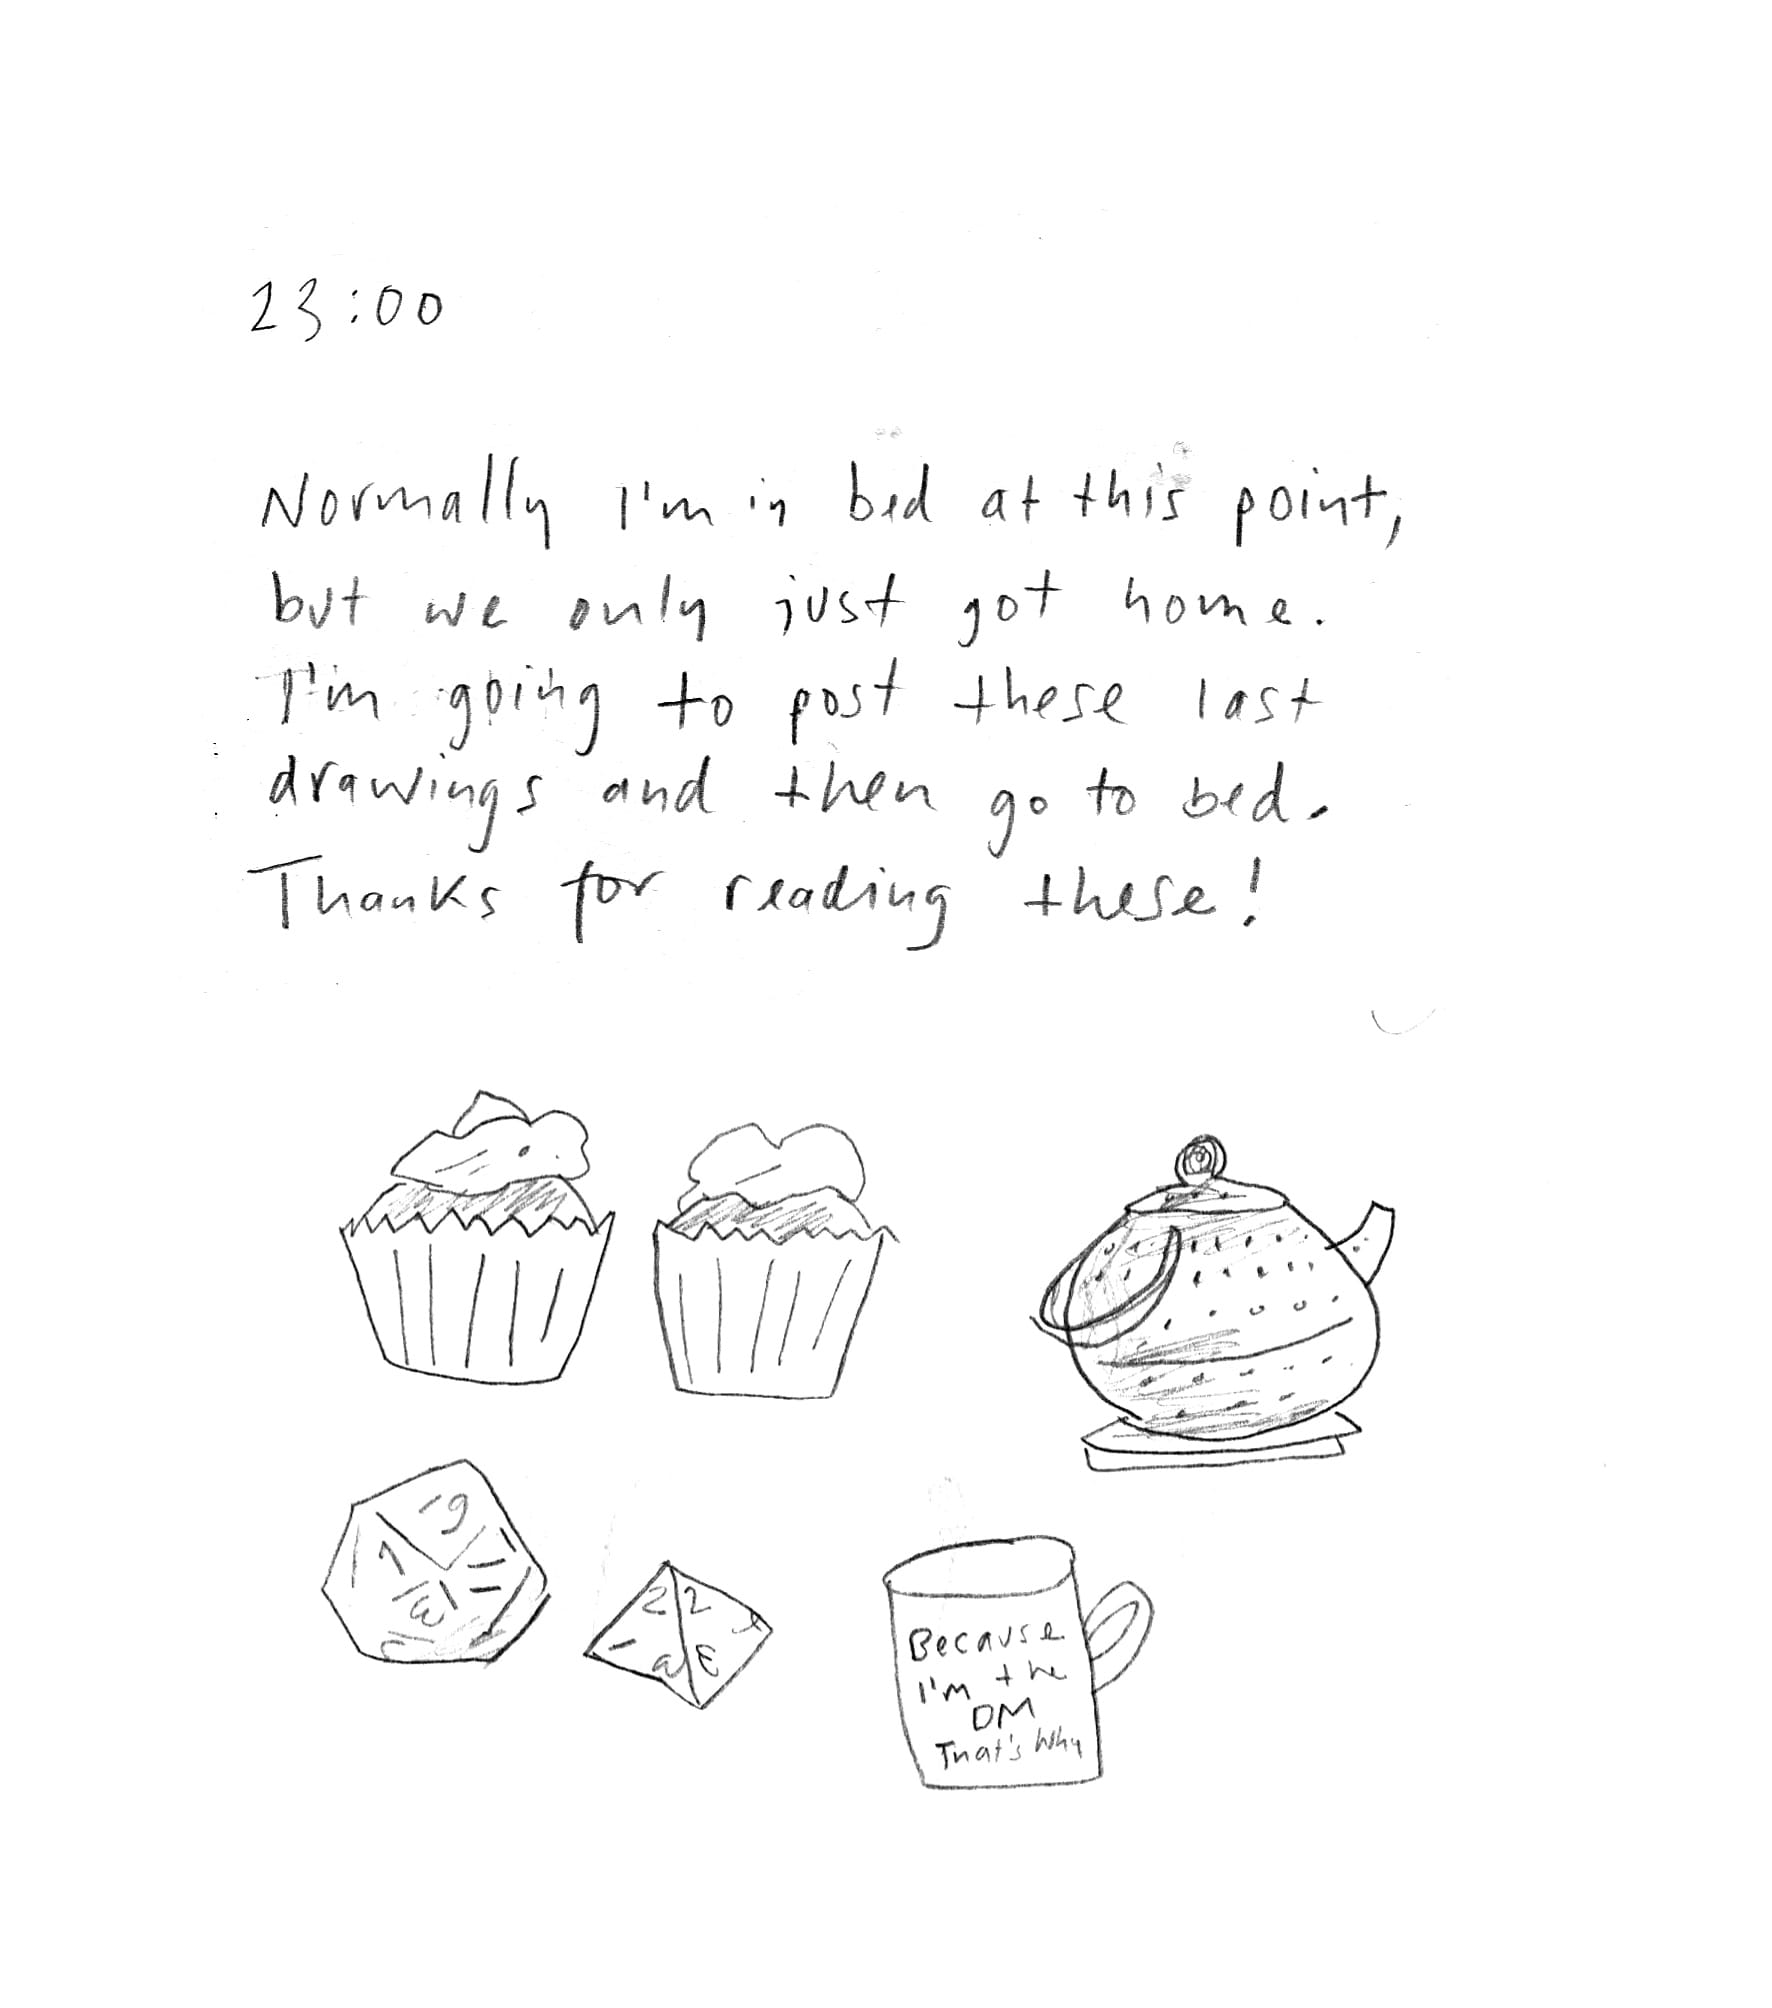 23:00
Normally I'm in bed at this point,
but we only just got home.
I'm going to post these last
drawings and then go to bed.
Thanks for reading these!
Because
I'm the
DM
That's Why